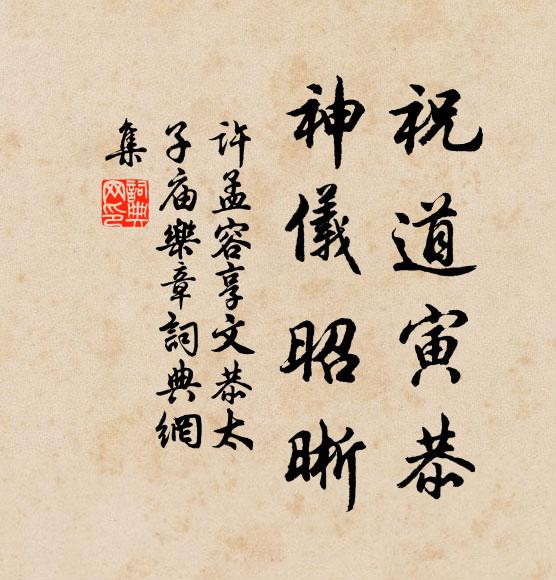 祝道寅恭
神儀昭晰
許孟容享文恭太
子庙樂章詞典網
集
詞典
网印